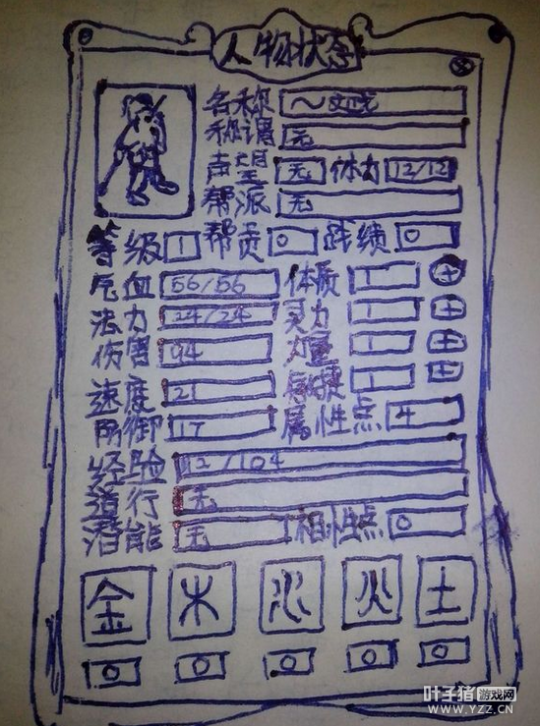 人物状态
名称 ~文戎
称谓 无
声望 无 体力 12/12
帮派 无
等级 1 帮贡 0 战绩 0
气血 56/56 体质 1 +
法力 24/24 灵力 1 +
伤害 94 力量 1 +
速度 21 敏捷 1 +
防御 17 属性点 4
经验 12/104
道行 无
潜能 无 相性点 0
金 木 水 火 土
0 0 0 0 0
叶子猪游戏网
WWW.YZZ.CN